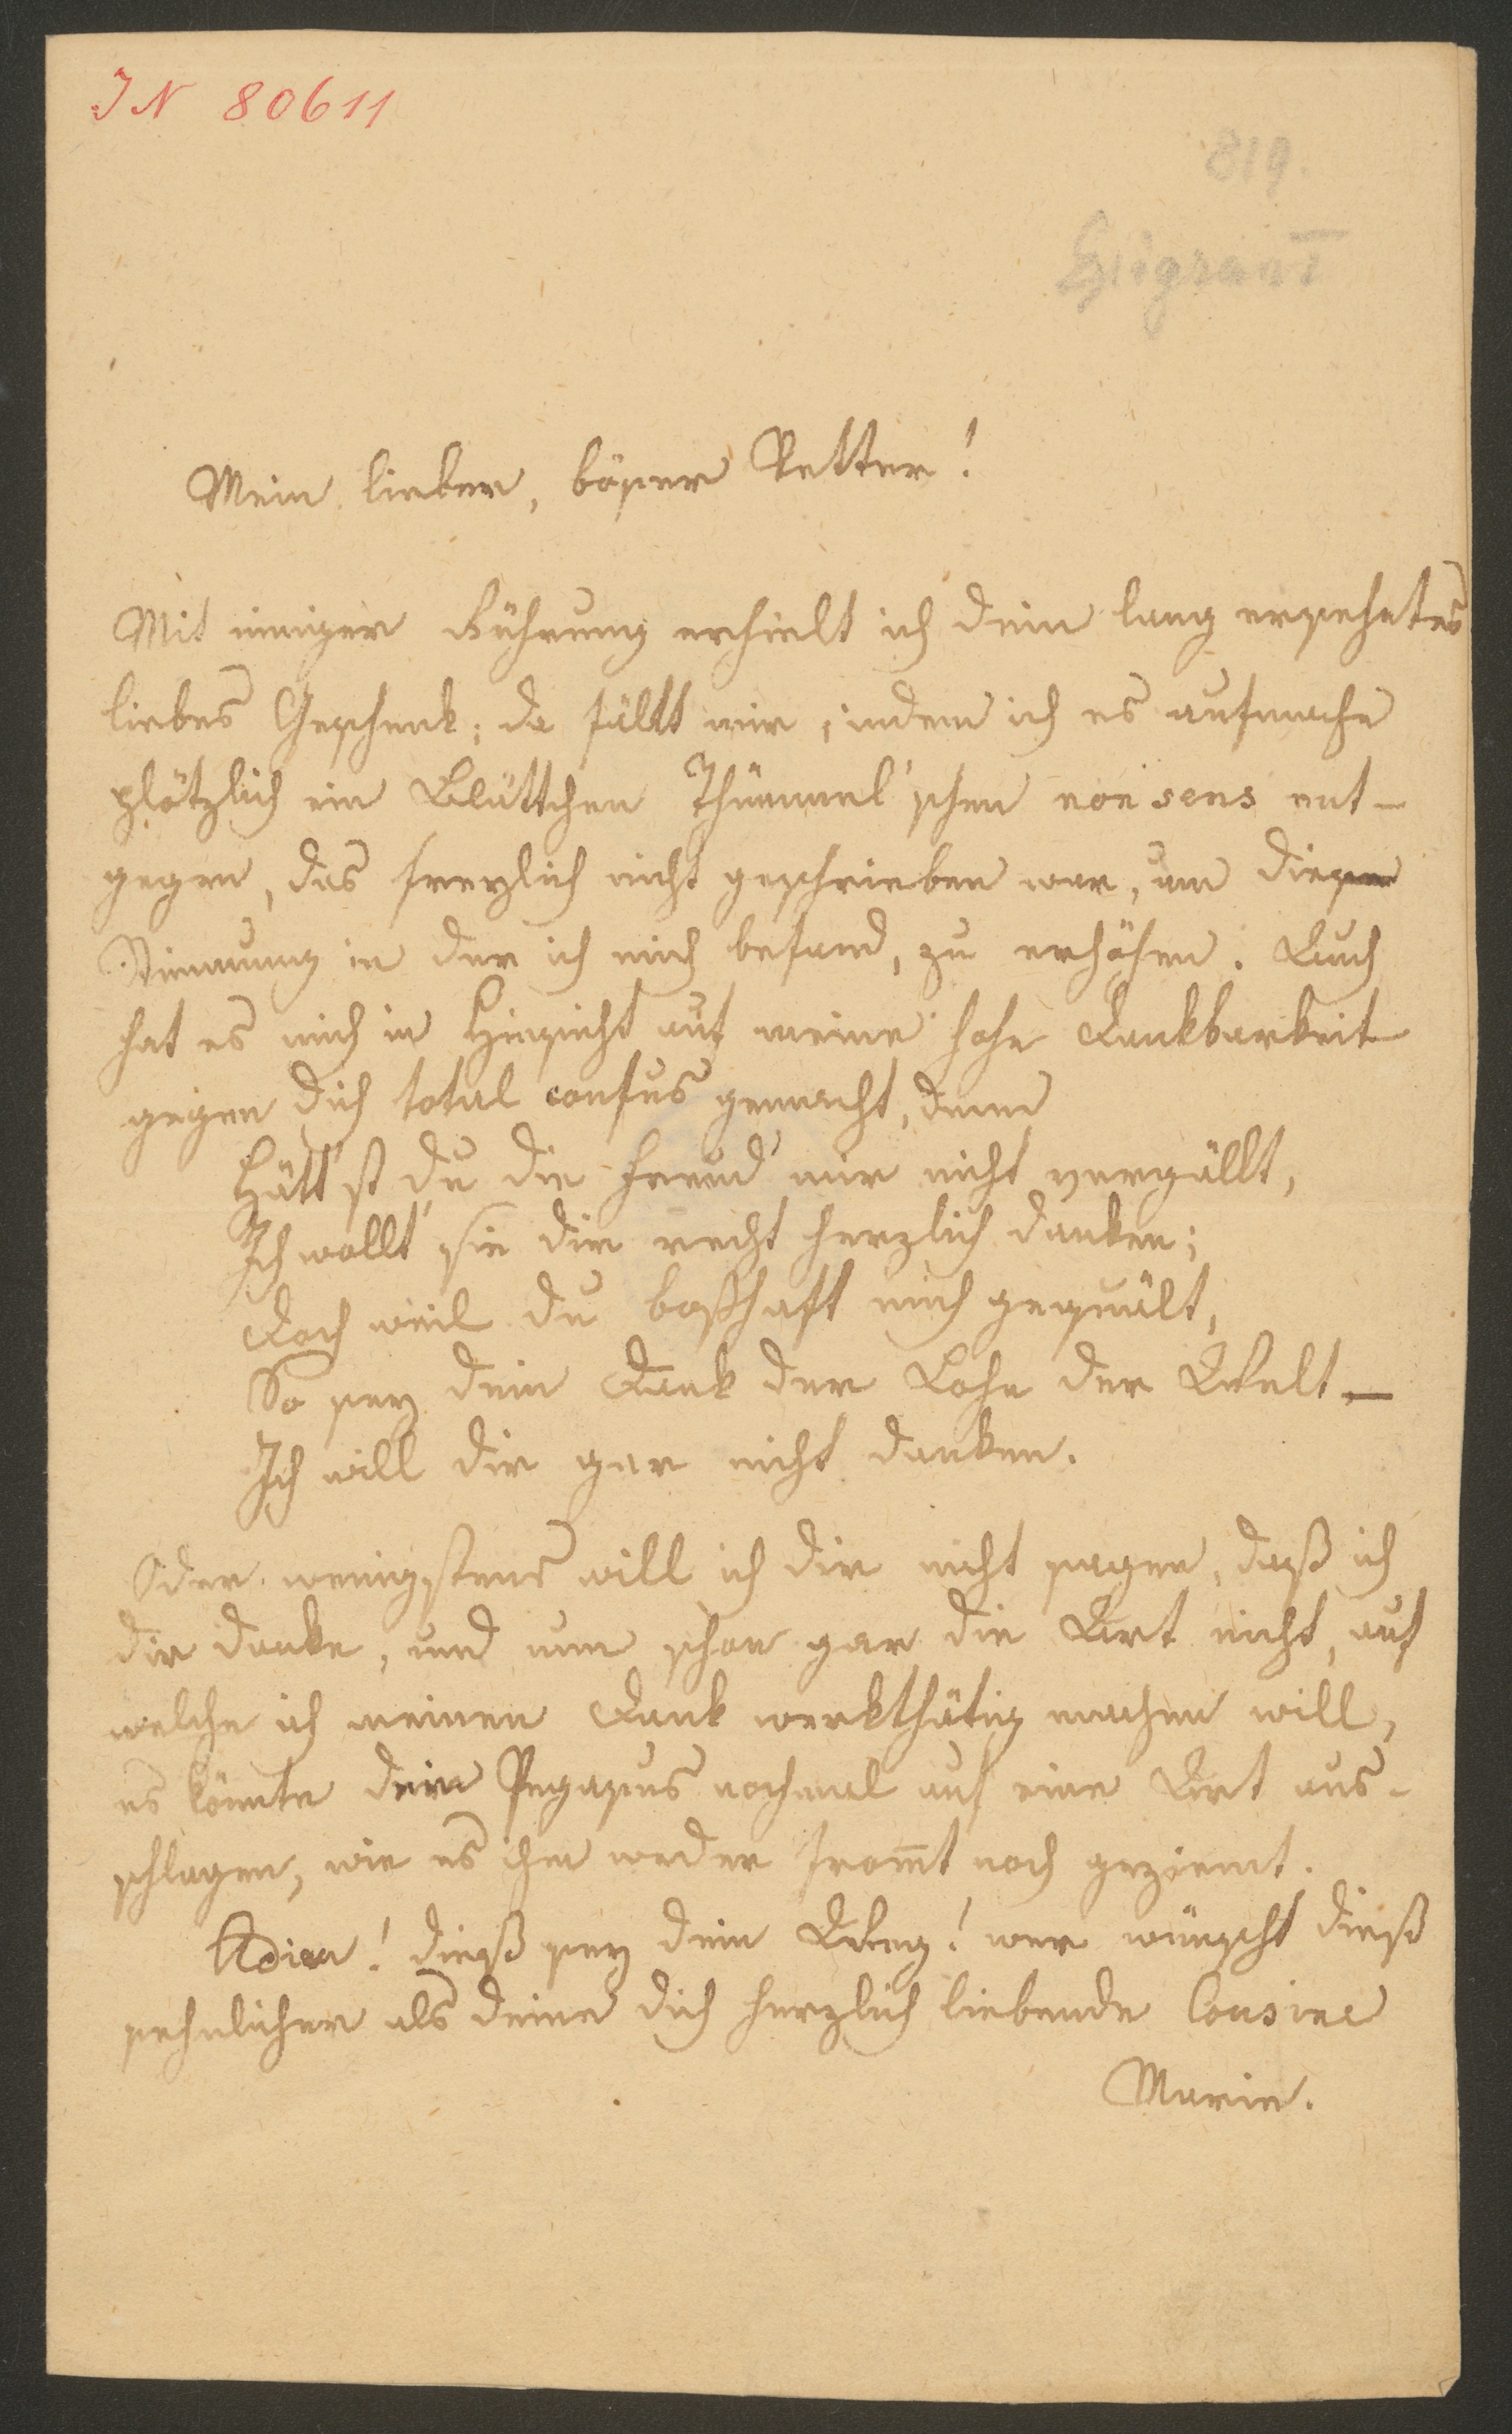 IN 80611
819.
Mein lieber, böser Vetter!
Mit inniger Rührung erhielt ich dein lang ersehntes
liebes Geschenk; da fällt mir, indem ich es aufmache
plötzlich ein Blättchen Thümmel'schen nonsens ent-
gegen, das freylich nicht geschrieben war, um die
Stimmung in der ich mich befand, zu erhöhen. Auch
hat es mich in Hinsicht auf meine hohe Dankbarkeit
gegen dich total confus gemacht, denn
Hätt'st du die Freud' mir nicht vergällt,
Ich wollt' sie dir recht herzlich danken;
Doch weil du boßhaft mich gequält,
So sey dein Dank der Lohn der Welt –
Ich will dir gar nicht danken.
Oder wenigstens will ich dir nicht sagen, daß ich
dir danke, und nun schon gar die Art nicht, auf
welche ich meinen Dank werkthätig machen will,
es könnte dein Pegasus nochmal auf eine Art aus-
schlagen, wie es ihm weder from̅t noch geziemt.
Adieu! dieß sey dein Weg! wer wünscht dieß
sehnlicher als deine dich herzlich liebende Cousine
Marie.